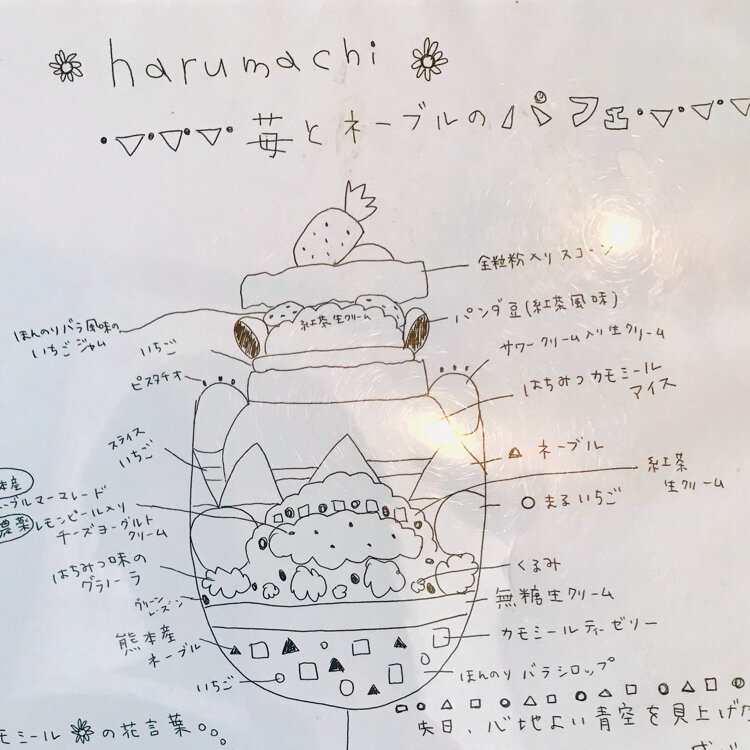 harumachi
苺とネーブルのパフェ
全粒粉入りスコーン
ほんのりバラ風味の
いちごジャム
紅茶生クリーム
パンダ豆(紅茶風味)
いちご
サワークリーム入り生クリーム
ピスタチオ
はちみつカモミール
アイス
スライス
いちご
ネーブル
紅茶
生クリーム
ーブルマーマレード
まるいちご
農薬レモンピール入り
チーズヨーグルト
クリーム
はちみつ味の
グラノーラ
くるみ
グリーン
レーズン
無糖生クリーム
熊本産
ネーブル
カモミールティーゼリー
いちご
ほんのりバラシロップ
モミールの花言葉。
先日、心地よい青空を見上げた